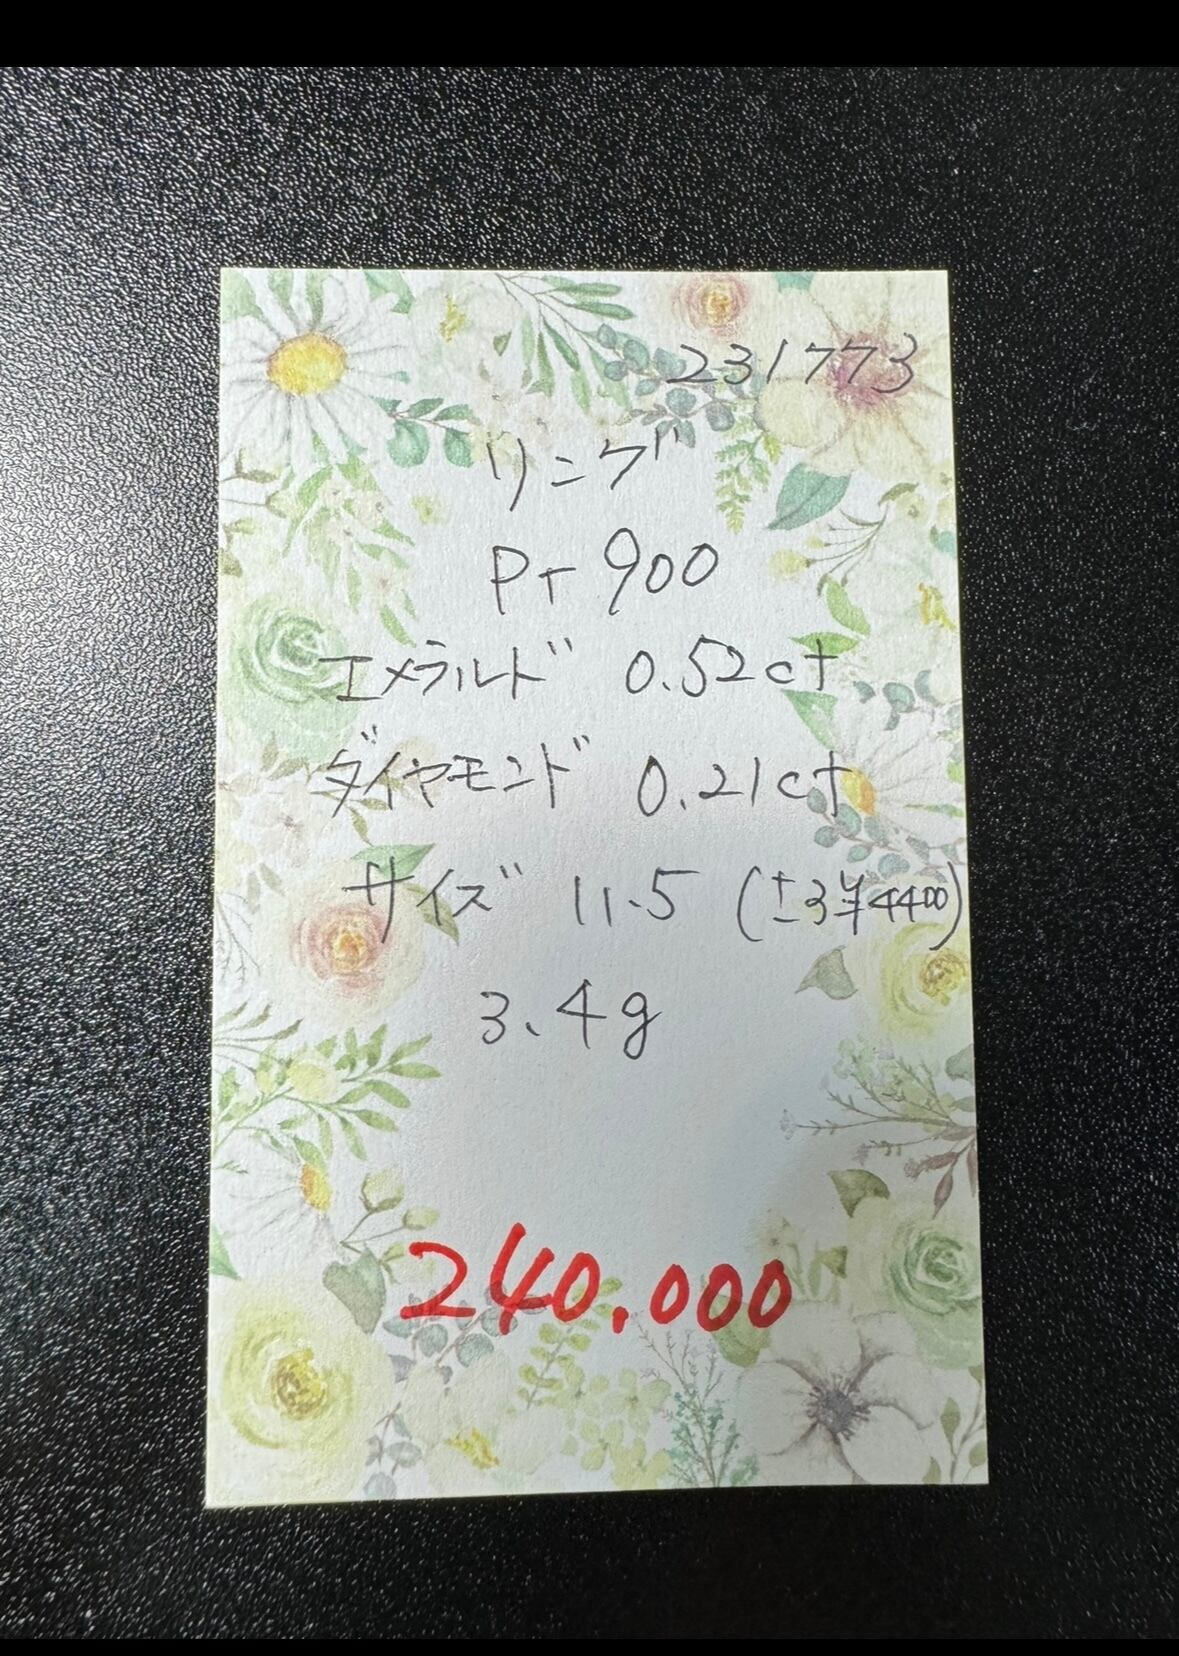 231773
リング
Pt 900
エメラルド 0.52ct
ダイヤモンド 0.21ct
サイズ 11.5 (±3 ¥4400)
3.4g
240.000